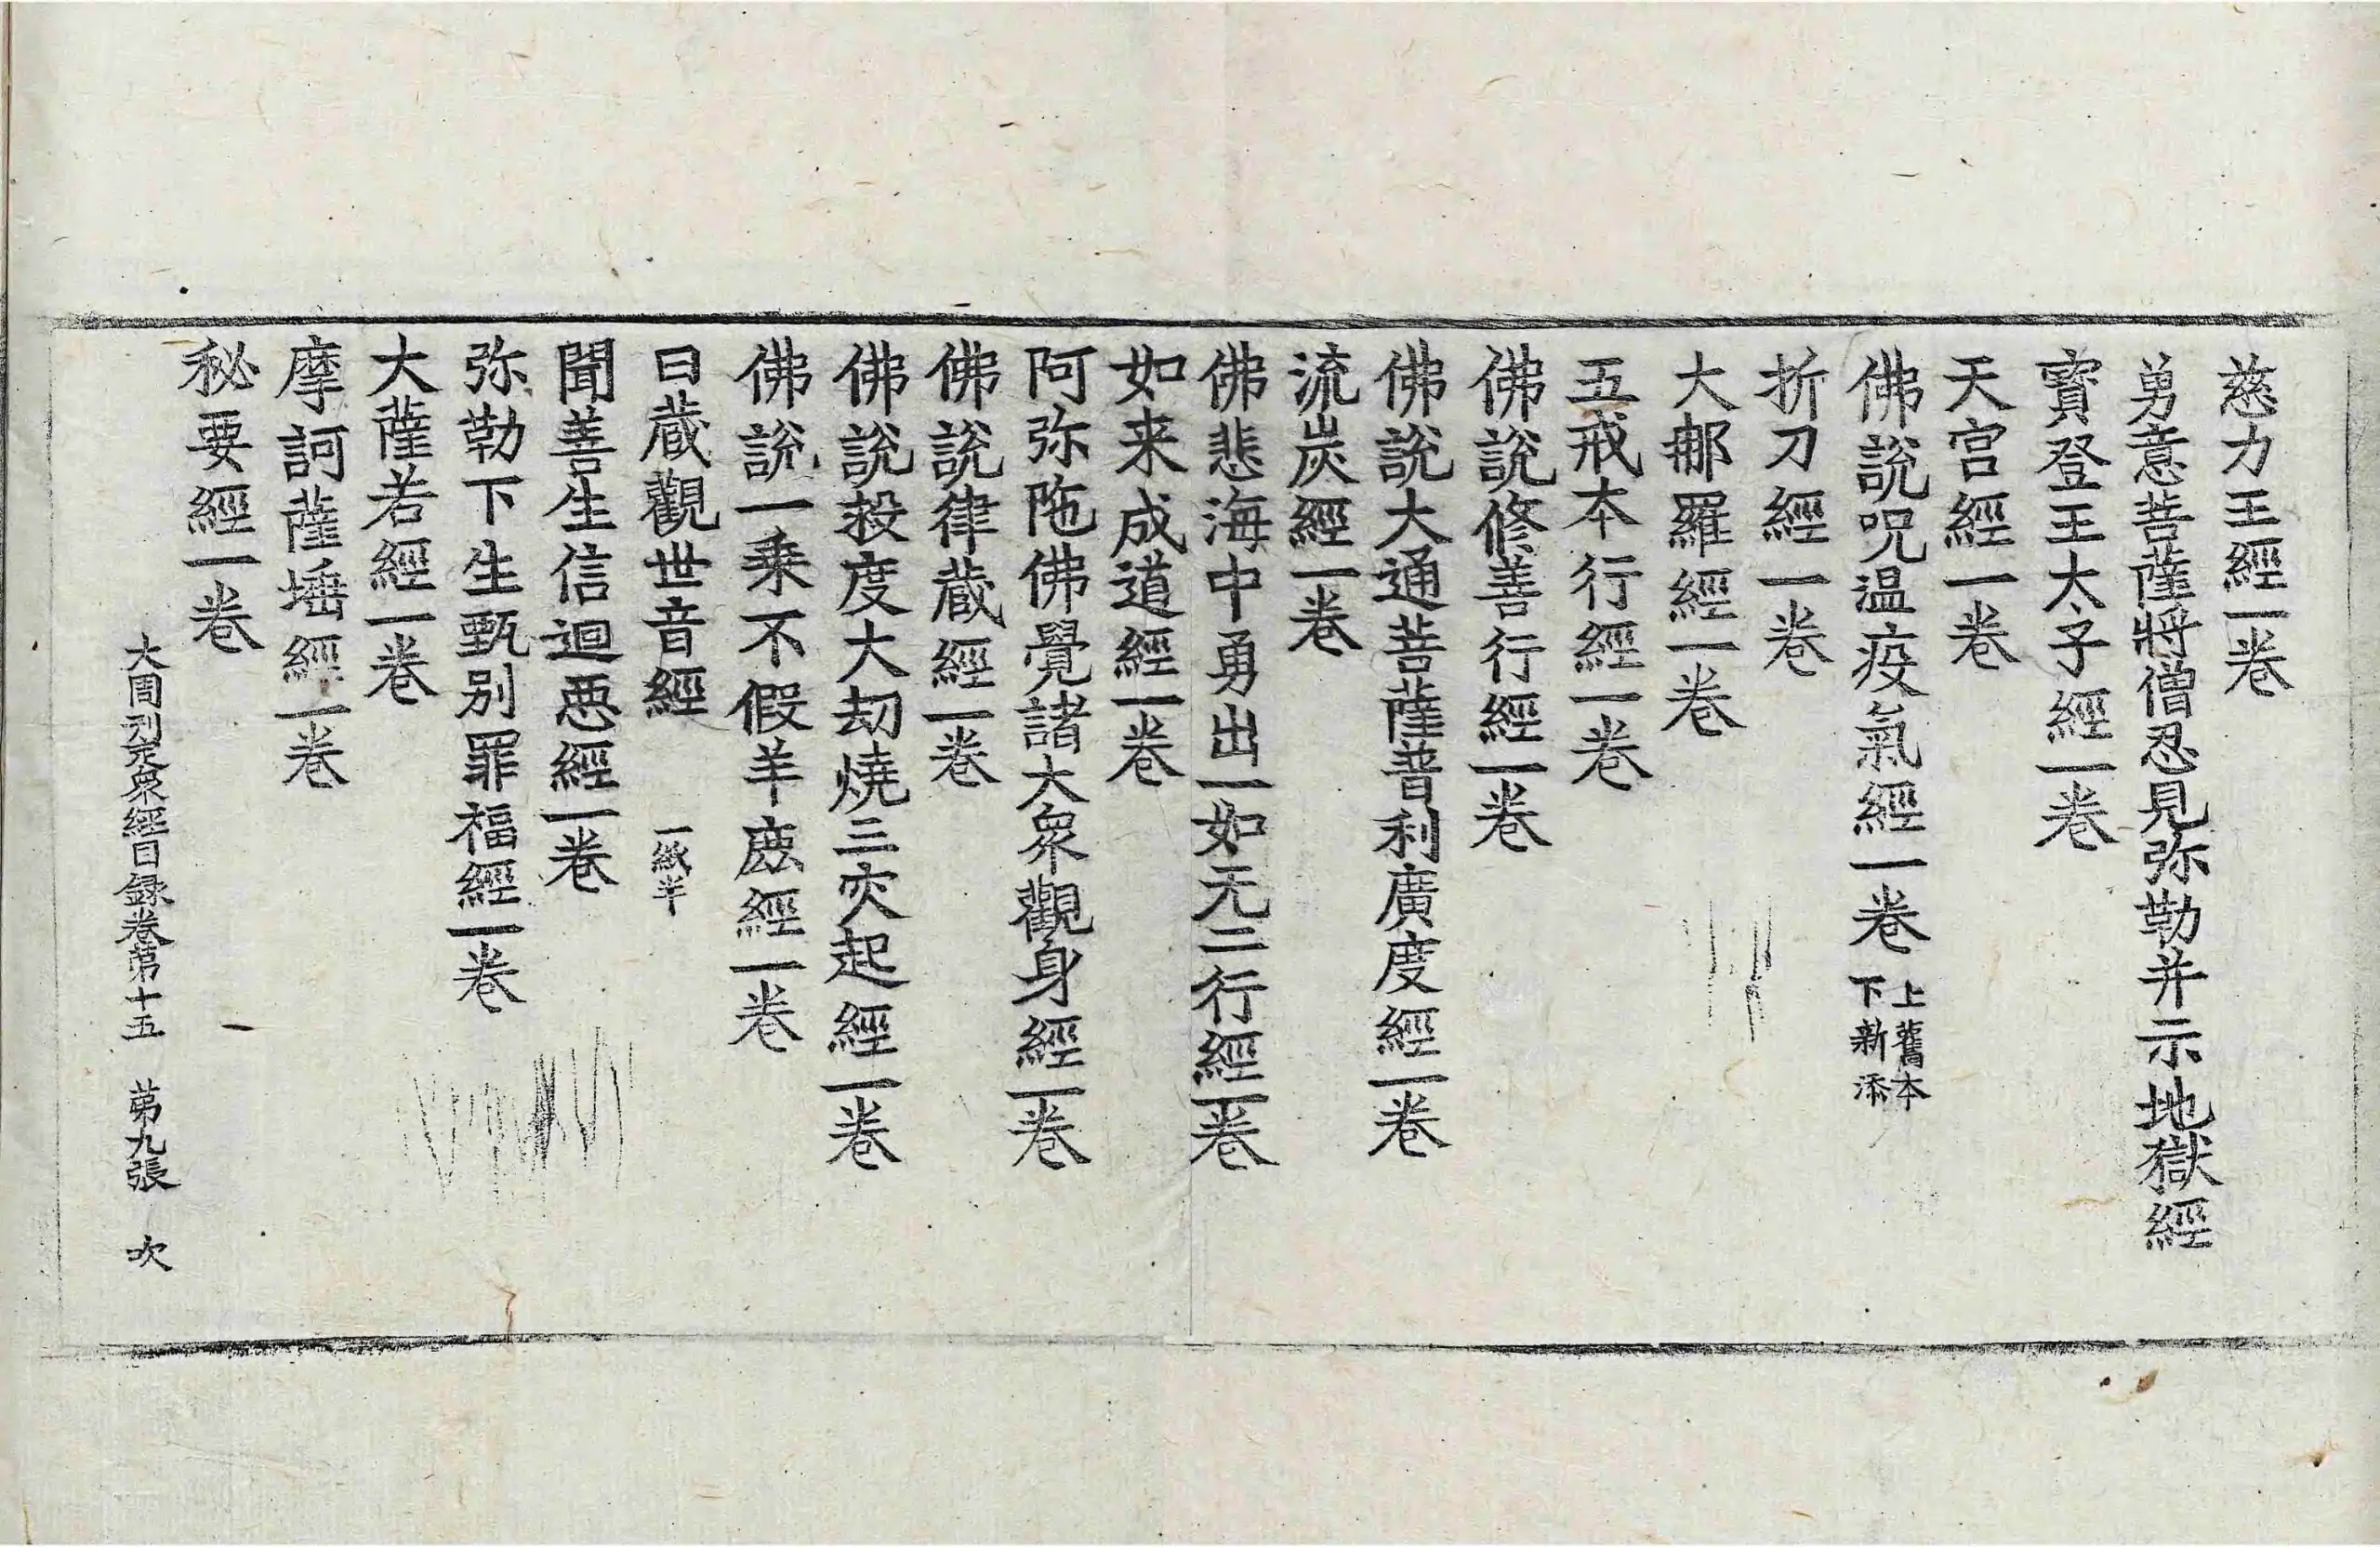 慈力王經一卷
勇意菩薩將僧忍見弥勒并示地獄經
寶登王大子經一卷
天宮經一卷
佛說呪温疫氣經一卷 上舊本下新添
折刀經一卷
大䣙羅經一卷
五戒本行經一卷
佛說修善行經一卷
佛說大通菩薩普利廣度經一卷
流炭經一卷
佛悲海中勇出一如无二行經一卷
如来成道經一卷
阿弥陁佛覺諸大衆觀身經一卷
佛說律蔵經一卷
佛說救度大劫燒三灾起經一卷
佛說一乗不假羊鹿經一卷
日蔵觀世音經 一紙半
聞善生信迴惡經一卷
弥勒下生甄别罪福經一卷
大薩若經一卷
摩訶薩埵經一卷
秘要經一卷
大周刋定衆經目録卷第十五 第九張 吹